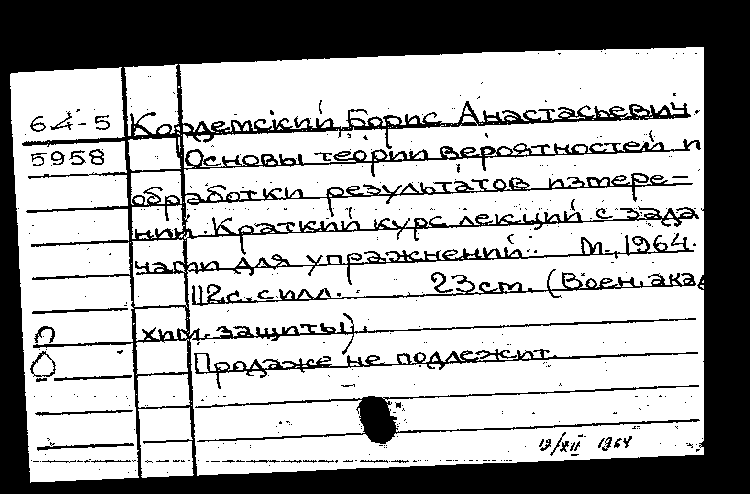 64-5 Кордемский, Борис Анастасьевич.
5958 Основы теории вероятностей и
обработки результатов измере-
ний. Краткий курс лекций с зада
чами для упражнений. М., 1964.
112 с. с илл. 23 см. (Воен. акад
хим. защиты).
Продаже не подлежит.
19/XII 1964